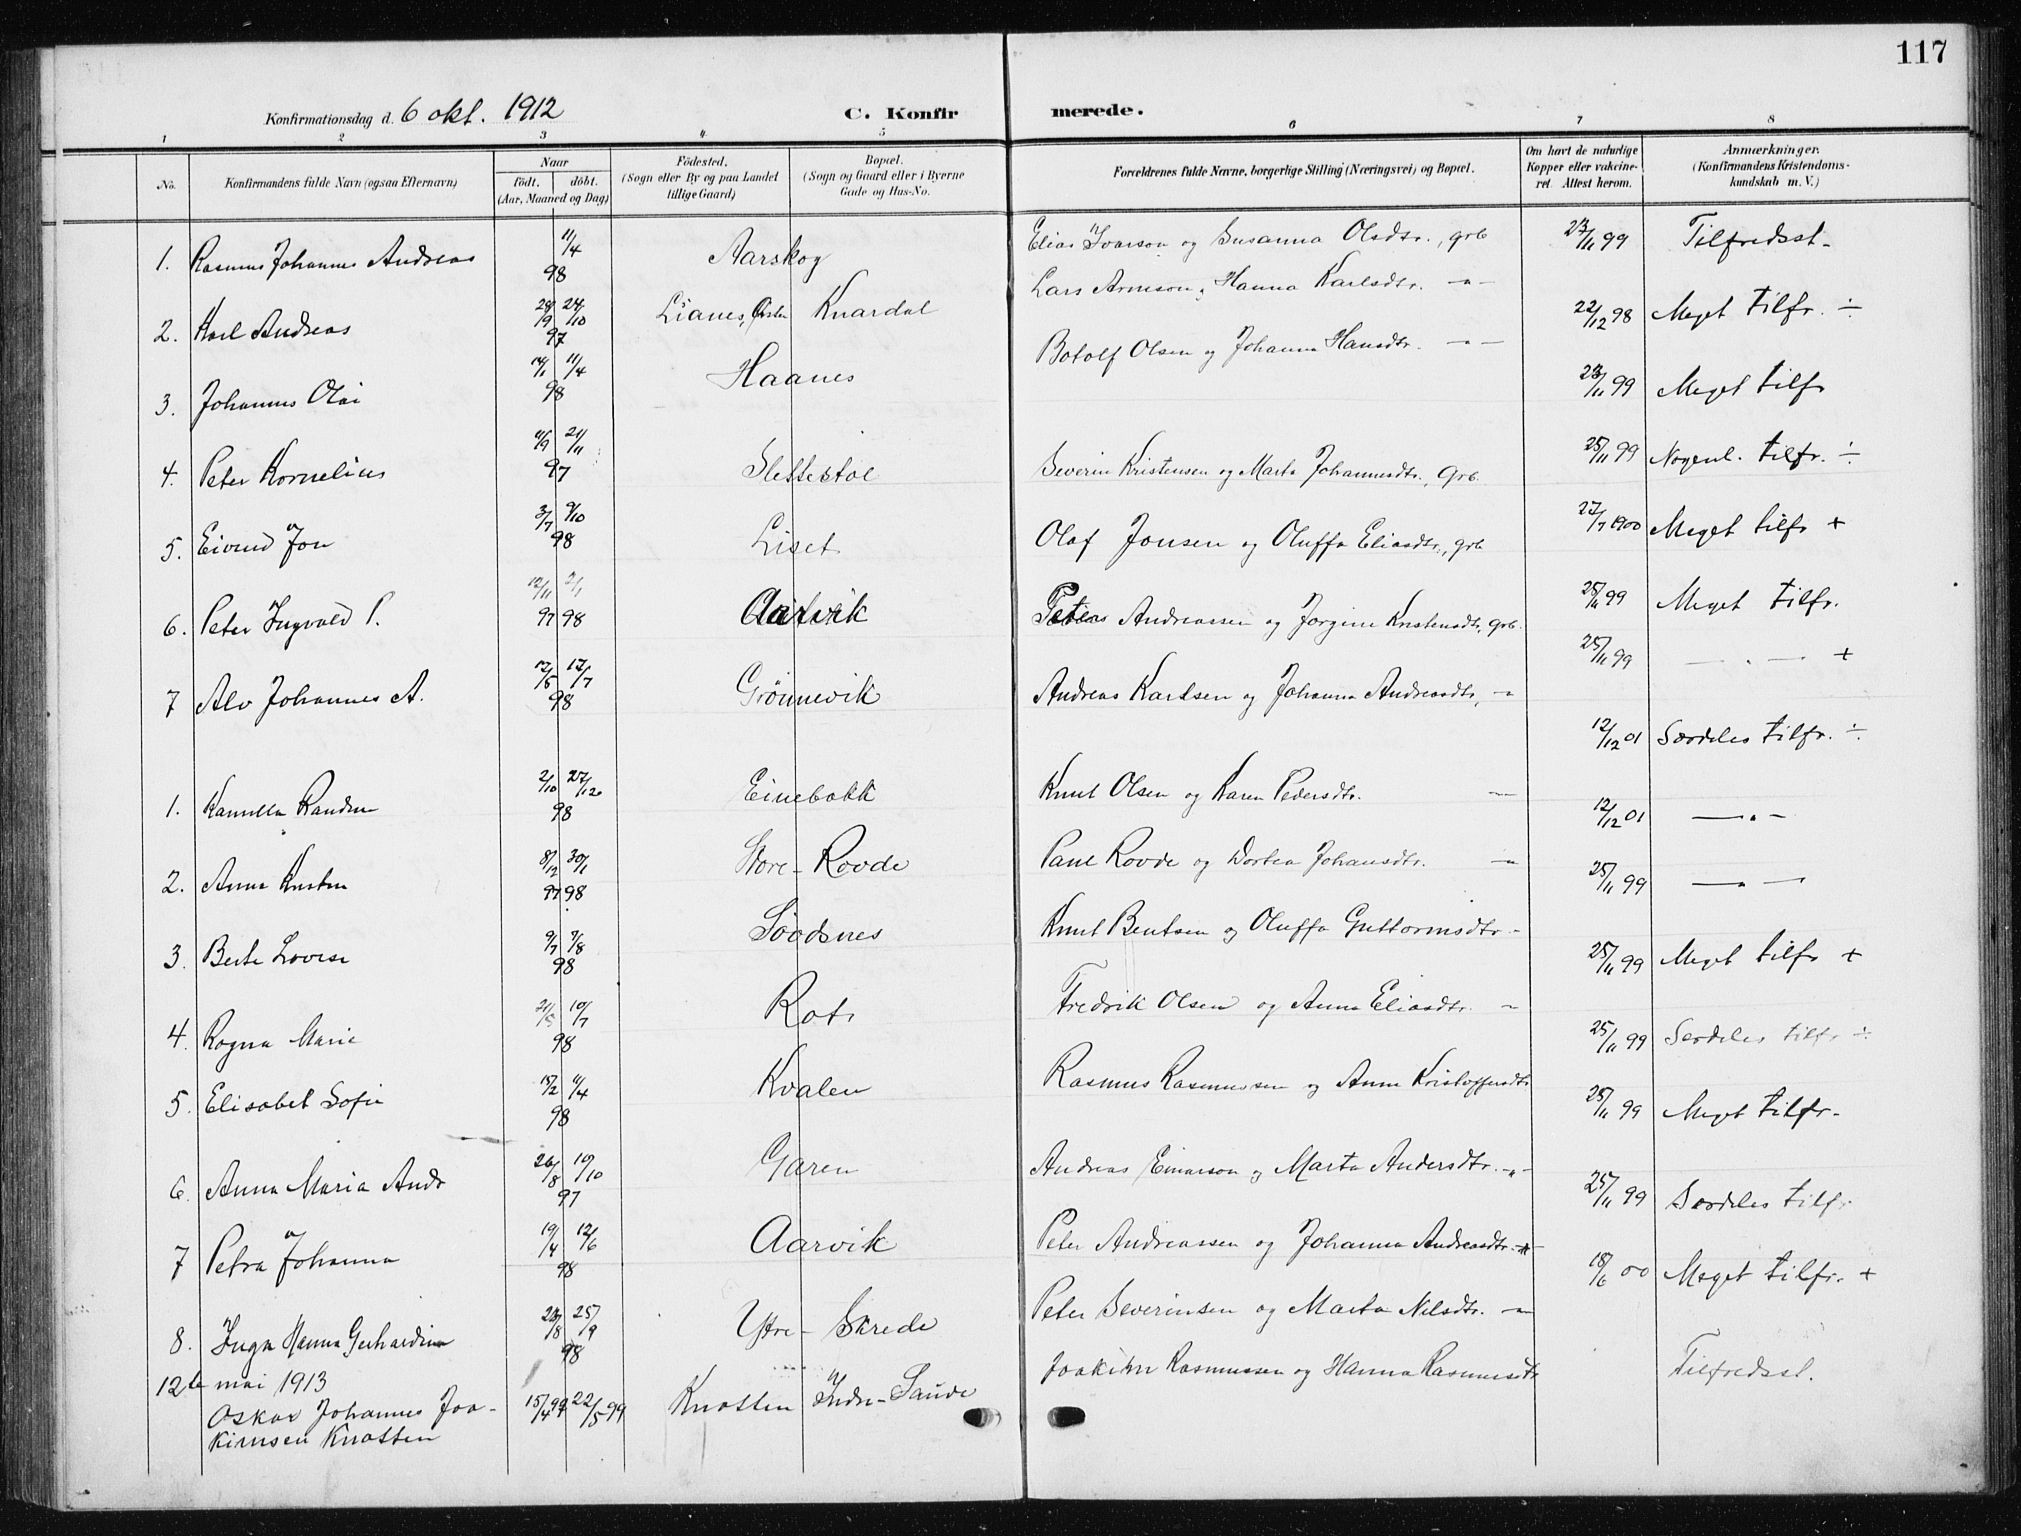 117
Konfirmationsdag d. 6 okt. 1912 C. Konfirmerede.
1 2 3 4 5 6 7 8
No. Konfirmandens fulde Navn (ogsaa Efternavn) Naar födt. döbt. (Aar, Maaned og Dag) Födested. (Sogn eller By og paa Landet tillige Gaard) Bopæl. (Sogn og Gaard eller i Byerne Gade og Hus-No. Forældrenes fulde Navne, borgerlige Stilling (Næringsvei) og Bopæl. Om havt de naturlige Kopper eller vakcineret. Attest herom. Anmærkninger. (Konfirmandens Kristendomskundskab m. V.)
1. Rasmus Johannes Andreas 11/4 98 Aarskog Elias Ivarson og Susanna Olsdtr., grb 23/11 99 Tilfredsst.
2. Karl Andreas 28/9 24/10 97 Lianes, Knardal Lars Arneson og Hanna Karlsdtr. -"- 22/12 98 Meget tilfr. ÷
3. Johannes Olai 11/4 98 Haanes Botolf Olsen og Johanna Hansdtr. -"- 23/11 99 Meget tilfr
4. Peter Kornelius 11/9 21/11 97 Slettestøl Severin Kristensen og Marta Johannesdtr., Grb. 25/11 99 Nogenl. tilfr. ÷
5. Eivind Jon 3/7 9/10 98 Liset Olaf Jonsen og Oluffa Eliasdtr., grb 27/7 1900 Meget tilfr +
6. Peter Ingvald P. 12/11 2/1 97 98 Aarvik Andreassen og Jørgine Kristensdtr, grb. 25/11 99 Meget tilfr.
7 Alv Johannes A. 12/5 17/7 98 Grönnevik Andreas Karlsen og Johanna Andreasdtr, -" 25/11 99 — " — +
1. Kamilla Randine 2/10 27/12 98 Einebakk Knut Olsen og Karen Pedersdtr. -"- 12/12 01 Særdeles tilfr. ÷
2. Anna Kristine 8/12 30/1 97 98 Store-Rovde Paul Rovde og Dortea Johansdtr. -" 12/12 01 — " —
3. Berte Lovise 9/7 7/8 98 Sövdsnes Knut Bentsen og Oluffa Guttormsdtr - 25/11 99 — " —
4. Ragna Marie 21/5 10/7 98 Rots Fredrik Olsen og Anna Eliasdtr. -" 25/11 99 Meget tilfr +
5. Elisabet Sofie 15/2 11/4 98 Kvalen Rasmus Rasmussen og Anne Kristoffersdtr 25/11 99 Særdeles tilfr ÷
6. Anna Maria Andr 26/8 10/10 97 Garen Andreas Einarson og Marta Andersdtr. -"- 25/11 99 Meget tilfr.
7 Petra Johanna 19/4 12/6 98 Aarvik Peter Andreassen og Johanna Andreasdtr. -"- 25/11 99 Særdeles tilfr
8. Inga Hanna Gerhardine 23/8 25/9 98 Ytre-Skrede Peter Severinsen og Marta Nilsdtr. -"- 18/6 00 Meget tilfr. +
12te mai 1913
Oskar Johannes Joa- 15/4 99 22/5 99 Knotten Indre-Saude Joakim Rasmussen og Hanna Rasmusdtr Tilfredsst.
kimsen Knotten